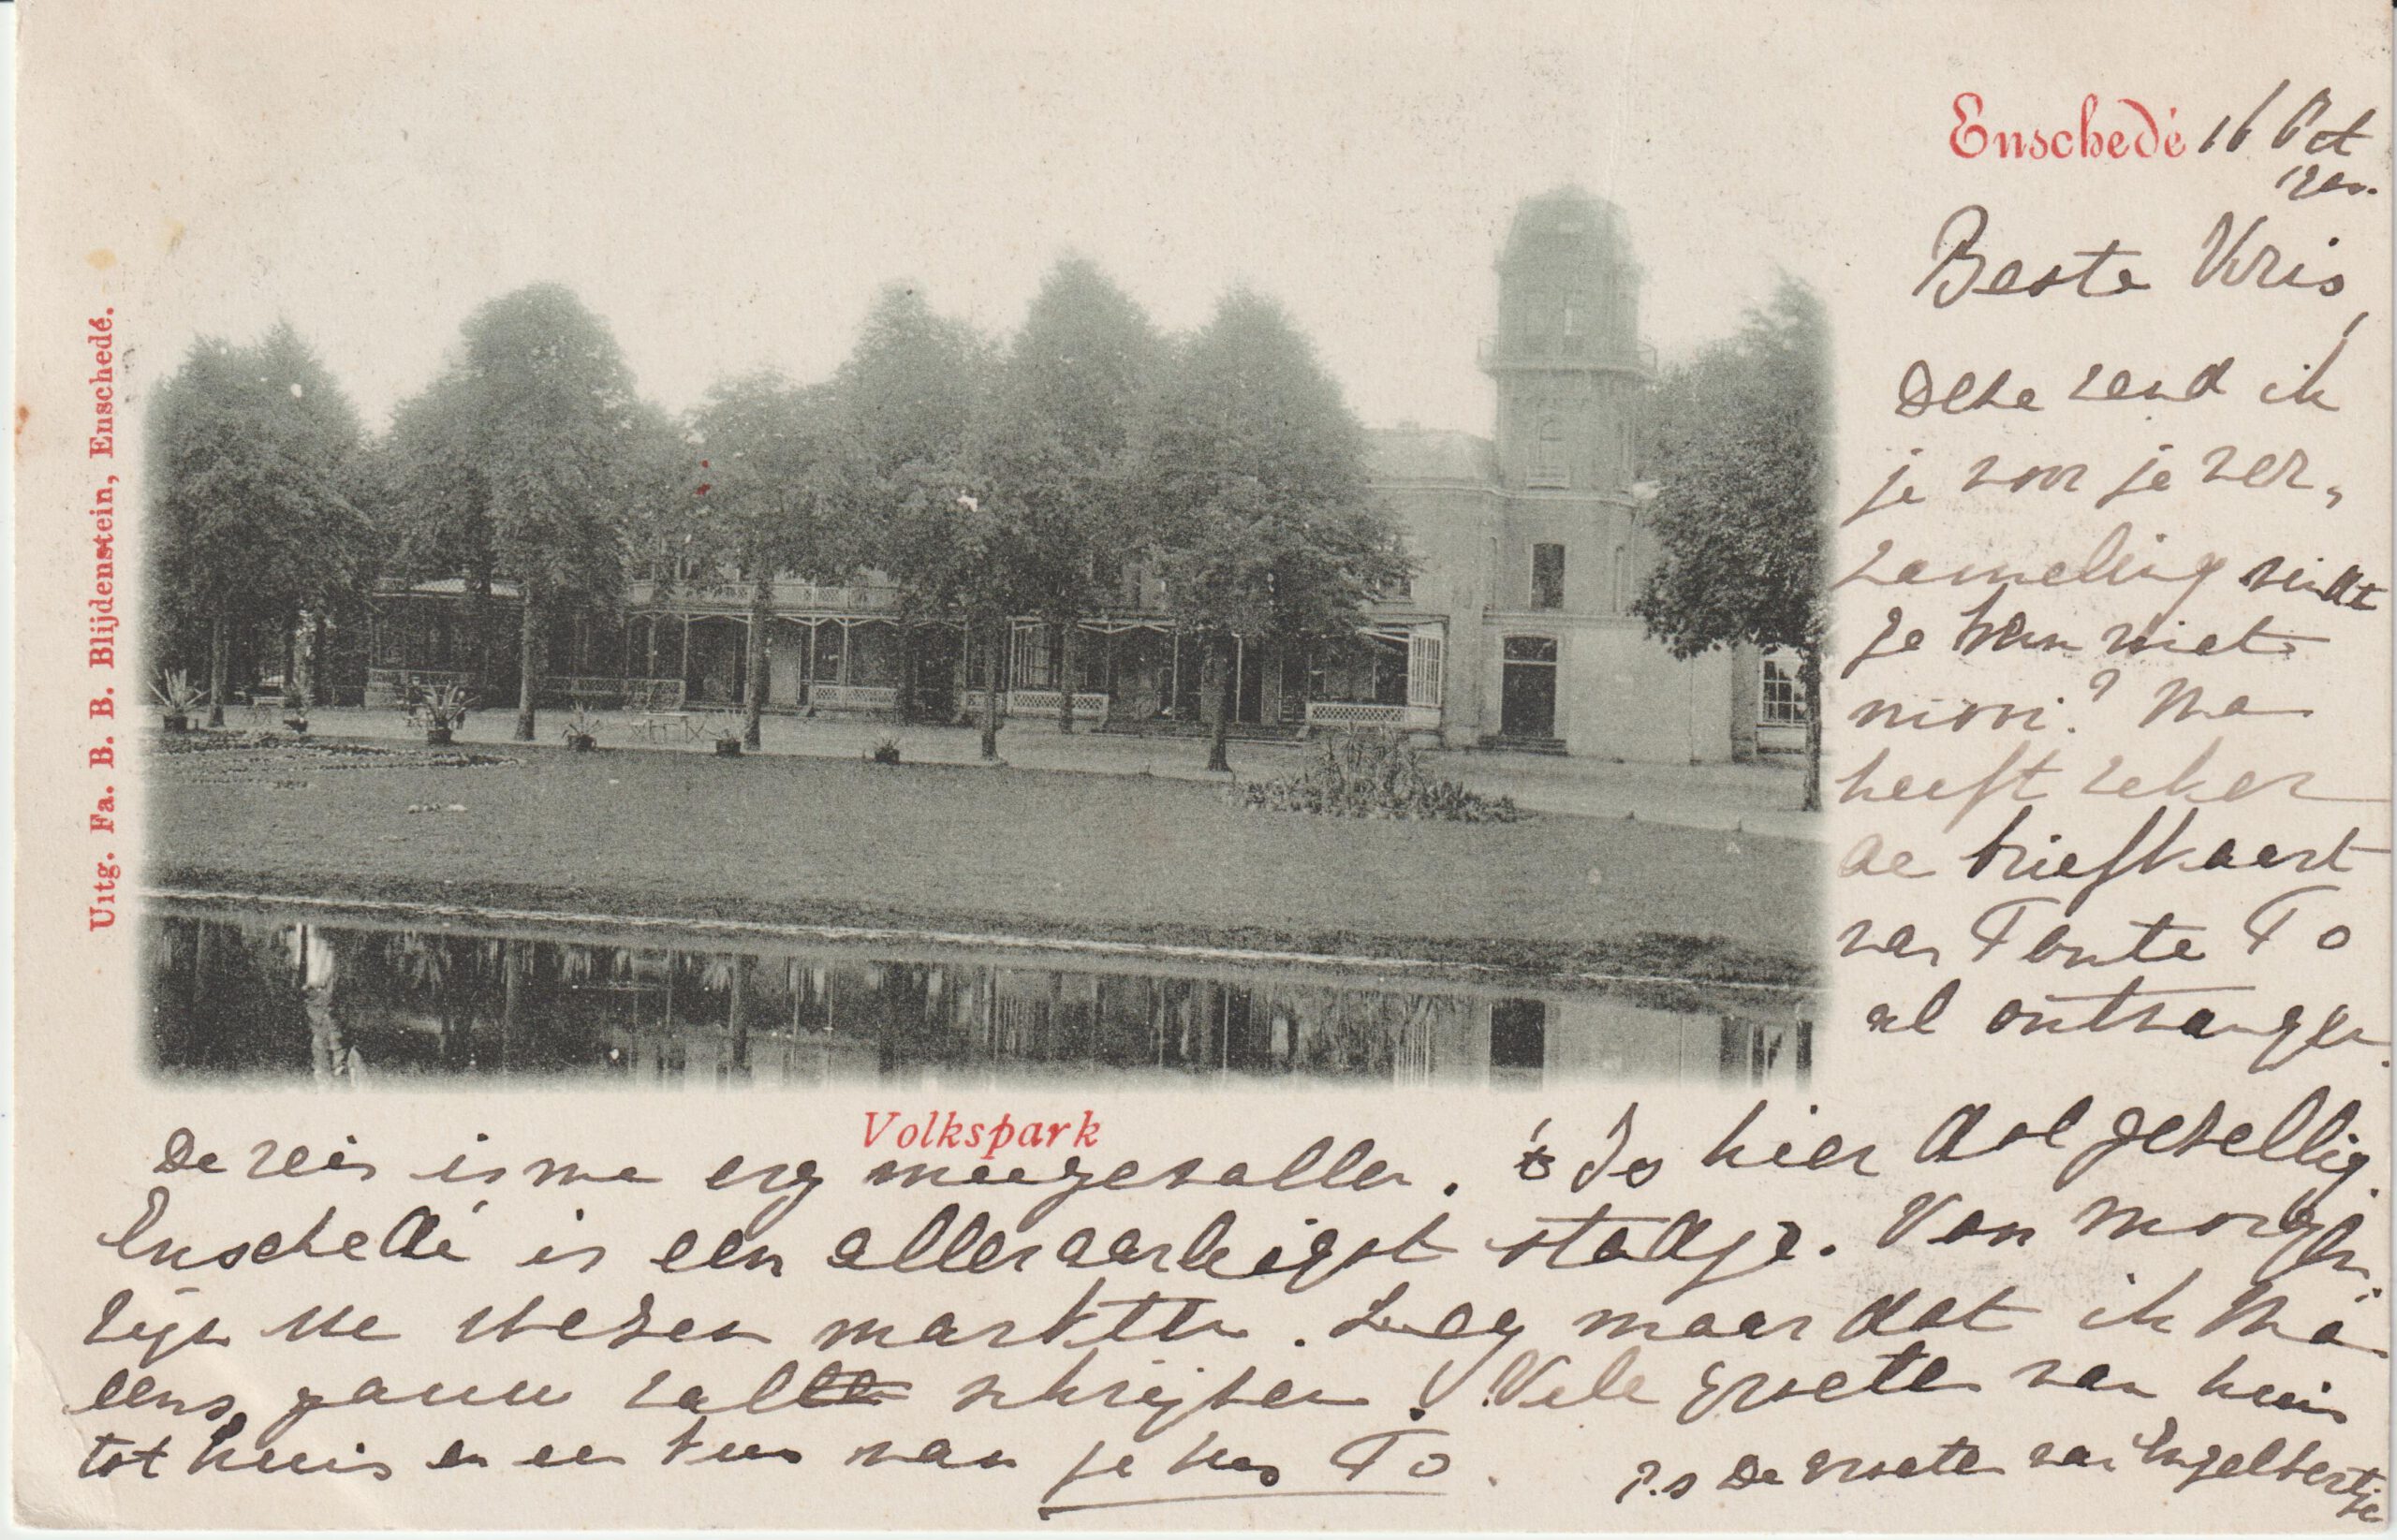 Enschedé 16 Oct
1900.
Beste Kris,
Deze zend ik
je voor je ver„
zameling vindt
je hem niet
mooi? Ma
heeft zeker
de briefkaart
van Tante To
al ontvangen.
Uitg. Fa. B. B. Blijdenstein, Enschedé.
Volkspark
De reis is me erg meegevallen. 't Is hier dol gezellig.
Enschedé is een alleraardigst stadje. Van morgen
zijn we wezen markten. Zeg maar dat ik Ma
eens gauw zal schrijven! Vele groeten van huis
tot huis en een kus van je zus To.
P.s De groeten van Engelbertje